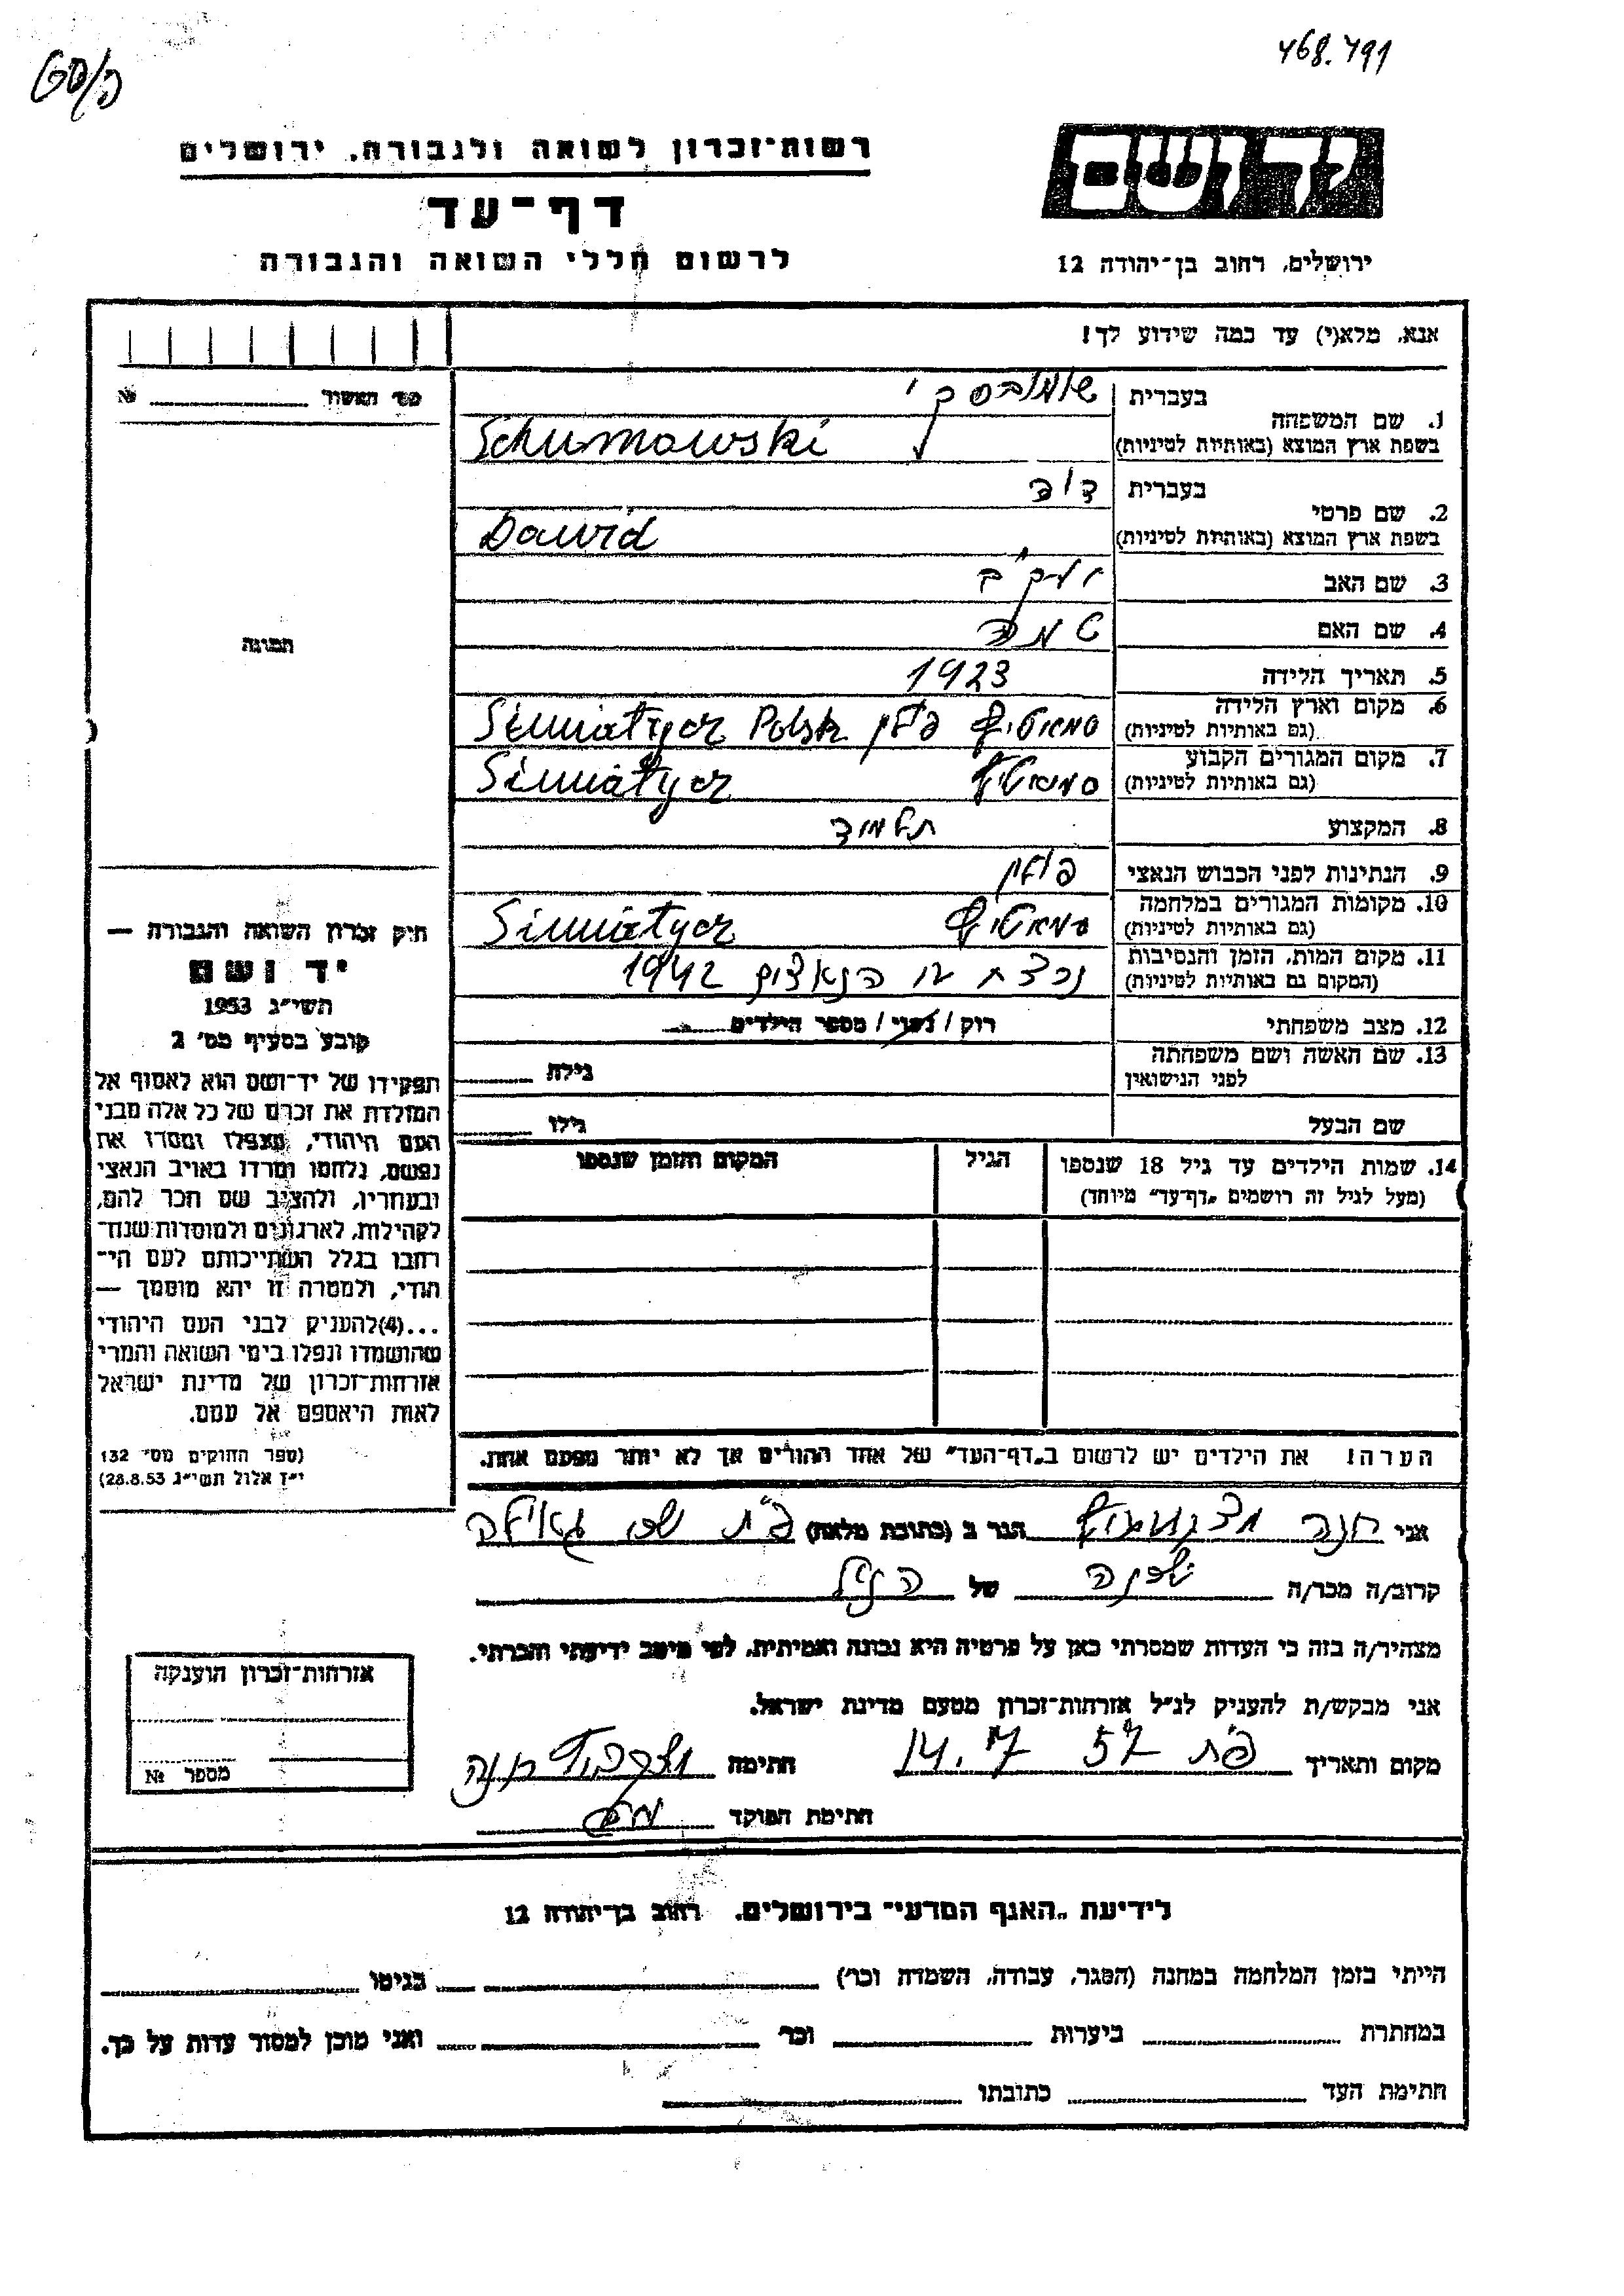 468.791
רשות־זכרון לשואה ולגבורה, ירושלים
דף־עד
לרשום חללי השואה והגבורה
יד ושם
ירושלים, רחוב בן־יהודה 12
אנא, מלא(י) עד כמה שידוע לך!
1. שם המשפחה
בעברית
שומובסקי
בשפת ארץ המוצא (באותיות לטיניות)
Schumowski
2. שם פרטי
בעברית
דוד
בשפת ארץ המוצא (באותיות לטיניות)
Dawid
3. שם האב
4. שם האם
5. תאריך הלידה 1923
6. מקום וארץ הלידה
(גם באותיות לטיניות)
פולין Polsk
7. מקום המגורים הקבוע
(גם באותיות לטיניות)
8. המקצוע תלמיד
9. הנתינות לפני הכבוש הנאצי פולין
10. מקומות המגורים במלחמה
(גם באותיות לטיניות)
11. מקום המות, הזמן והנסיבות
(המקום גם באותיות לטיניות)
נרצח ע״י הנאצים 1942
12. מצב משפחתי רווק / נשוי / מספר הילדים
13. שם האשה ושם משפחתה
לפני הנישואין
גילה
שם הבעל
גילו
14. שמות הילדים עד גיל 18 שנספו
(מעל לגיל זה רושמים „דף־עד״ מיוחד)
הגיל
המקום והזמן שנספו
הערה! את הילדים יש לרשום ב„דף־העד״ של אחד ההורים אך לא יותר מפעם אחת.
מס׳ האשור №
תמונה
חוק זכרון השואה והגבורה —
יד ושם
תשי״ג 1953
קובע בסעיף מס׳ 2
תפקידו של יד־ושם הוא לאסוף אל
המולדת את זכרם של כל אלה מבני
העם היהודי, שנפלו ומסרו את
נפשם, נלחמו ומרדו באויב הנאצי
ובעוזריו, ולהציב שם וזכר להם,
לקהילות, לארגונים ולמוסדות שנח־
רבו בגלל השתייכותם לעם הי־
הודי, ולמטרה זו יהא מוסמך —
...(4)להעניק לבני העם היהודי
שהושמדו ונפלו בימי השואה והמרי
אזרחות־זכרון של מדינת ישראל
לאות היאספם אל עמם.
(ספר החוקים מס׳ 132
י״ז אלול תשי״ג 28.8.53)
אני חנה הגר ב (כתובת מלאה)
קרוב/ה מכר/ה שכנה של הנ״ל
מצהיר/ה בזה כי העדות שמסרתי כאן על פרטיה היא נכונה ואמיתית, לפי מיטב ידיעתי והכרתי.
אני מבקש/ת להעניק לנ״ל אזרחות־זכרון מטעם מדינת ישראל.
מקום ותאריך 14.7 57 חתימה
חתימת הפוקד
אזרחות־זכרון הוענקה
מספר №
לידיעת „האגף המדעי״ בירושלים. רחוב בן־יהודה 12
הייתי בזמן המלחמה במחנה (הסגר, עבודה, השמדה וכו׳) בגיטו
במחתרת ביערות וכו׳ ואני מוכן למסור עדות על כך.
חתימת העד כתובתו